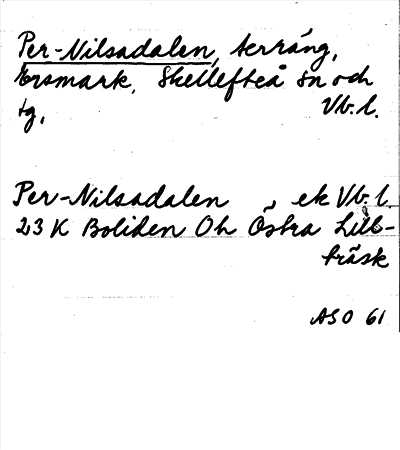 Per-Nilsadalen, terräng,
Ersmark, Skellefteå sn och
tg, Vb. l.
Per-Nilsadalen, ek Vb. l.
23 K Boliden Oh Östra Lill-
träsk
ASO 61